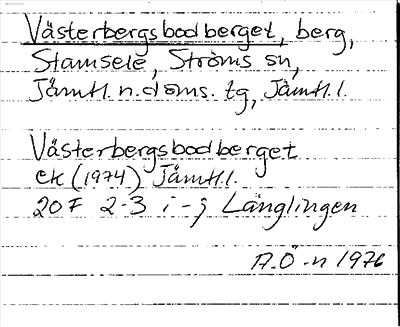 Västerbergsbodberget, berg,
Stamsele, Ströms sn,
Jämtl. n. doms. tg, Jämtl. l.
Västerbergsbodberget
ek (1974) Jämtl. l.
20 F 2-3 i-j Långlingen
A. Ö-n 1976